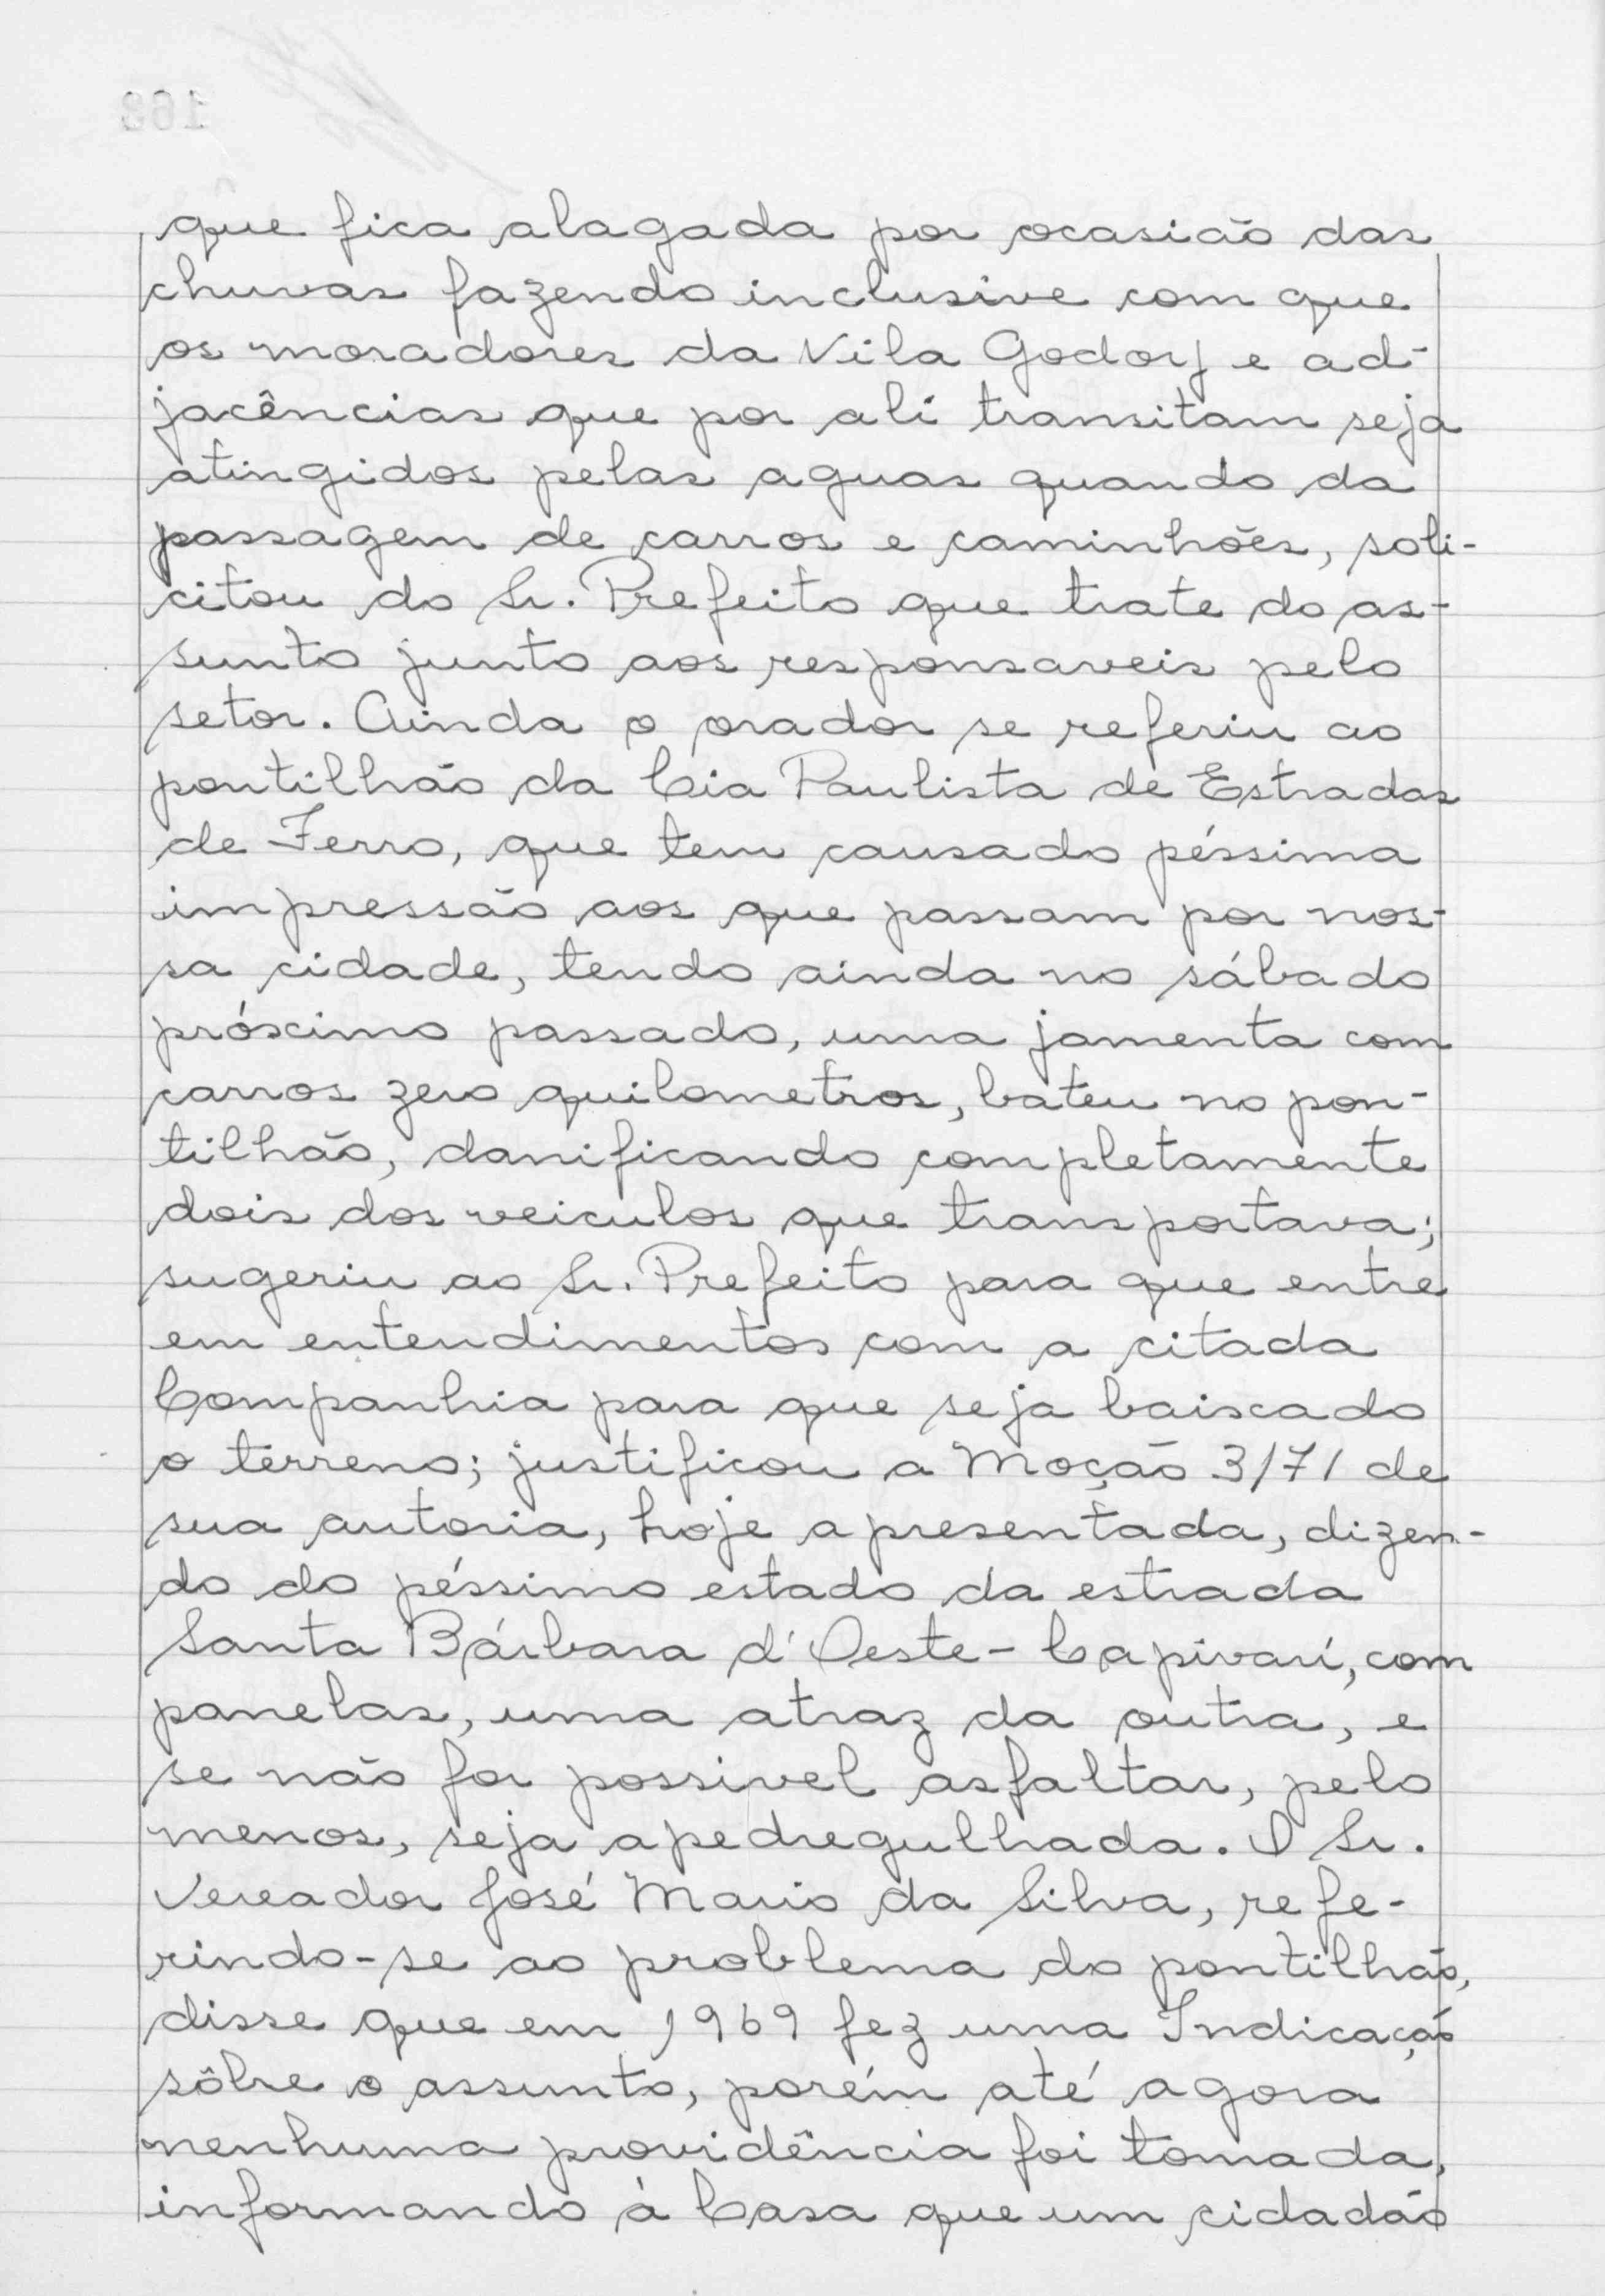 que fica alagada por ocasião das
chuvas fazendo inclusive com que
os moradores da Vila Godoy e ad-
jacências que por ali transitam seja
atingidos pelas aguas quando da
passagem de carros e caminhões, soli-
citou do Sr. Prefeito que trate do as-
sunto junto aos responsaveis pelo
setor. Ainda o orador se referiu ao
pontilhão da Cia Paulista de Estradas
de Ferro, que tem causado péssima
impressão aos que passam por nos-
sa cidade, tendo ainda no sábado
próximo passado, uma jamenta com
carros zero quilometros, bateu no pon-
tilhão, danificando completamente
dois dos veiculos que transportava;
sugeriu ao Sr. Prefeito para que entre
em entendimentos com a citada
Companhia para que seja baixado
o terreno; justificou a Moção 3/71 de
sua autoria, hoje apresentada, dizen-
do do péssimo estado da estrada
Santa Bárbara d'Oeste - Capivarí, com
panelas, uma atraz da outra, e
se não for possivel asfaltar, pelo
menos, seja apedregulhada. O Sr.
Vereador José Mario da Silva, refe-
rindo-se ao problema do pontilhão,
disse que em 1969 fez uma Indicação
sôbre o assunto, porém até agora
nenhuma providência foi tomada,
informando à Casa que um cidadão